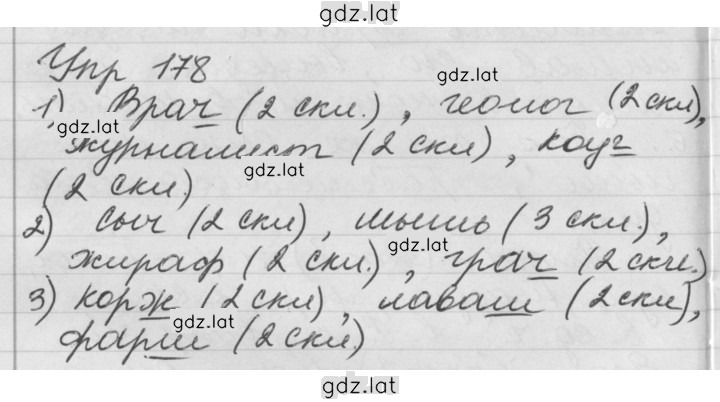 gdz.lat
Упр 178
gdz.lat
1) Врач (2 скл.), геолог (2 скл),
gdz.lat
журналист (2 скл), коуч
gdz.lat
(2 скл.)
2) сыч (2 скл), мышь (3 скл.),
gdz.lat
жираф (2 скл.), грач (2 скл.)
3) корж (2 скл), лаваш (2 скл),
gdz.lat
фарш (2 скл)
gdz.lat